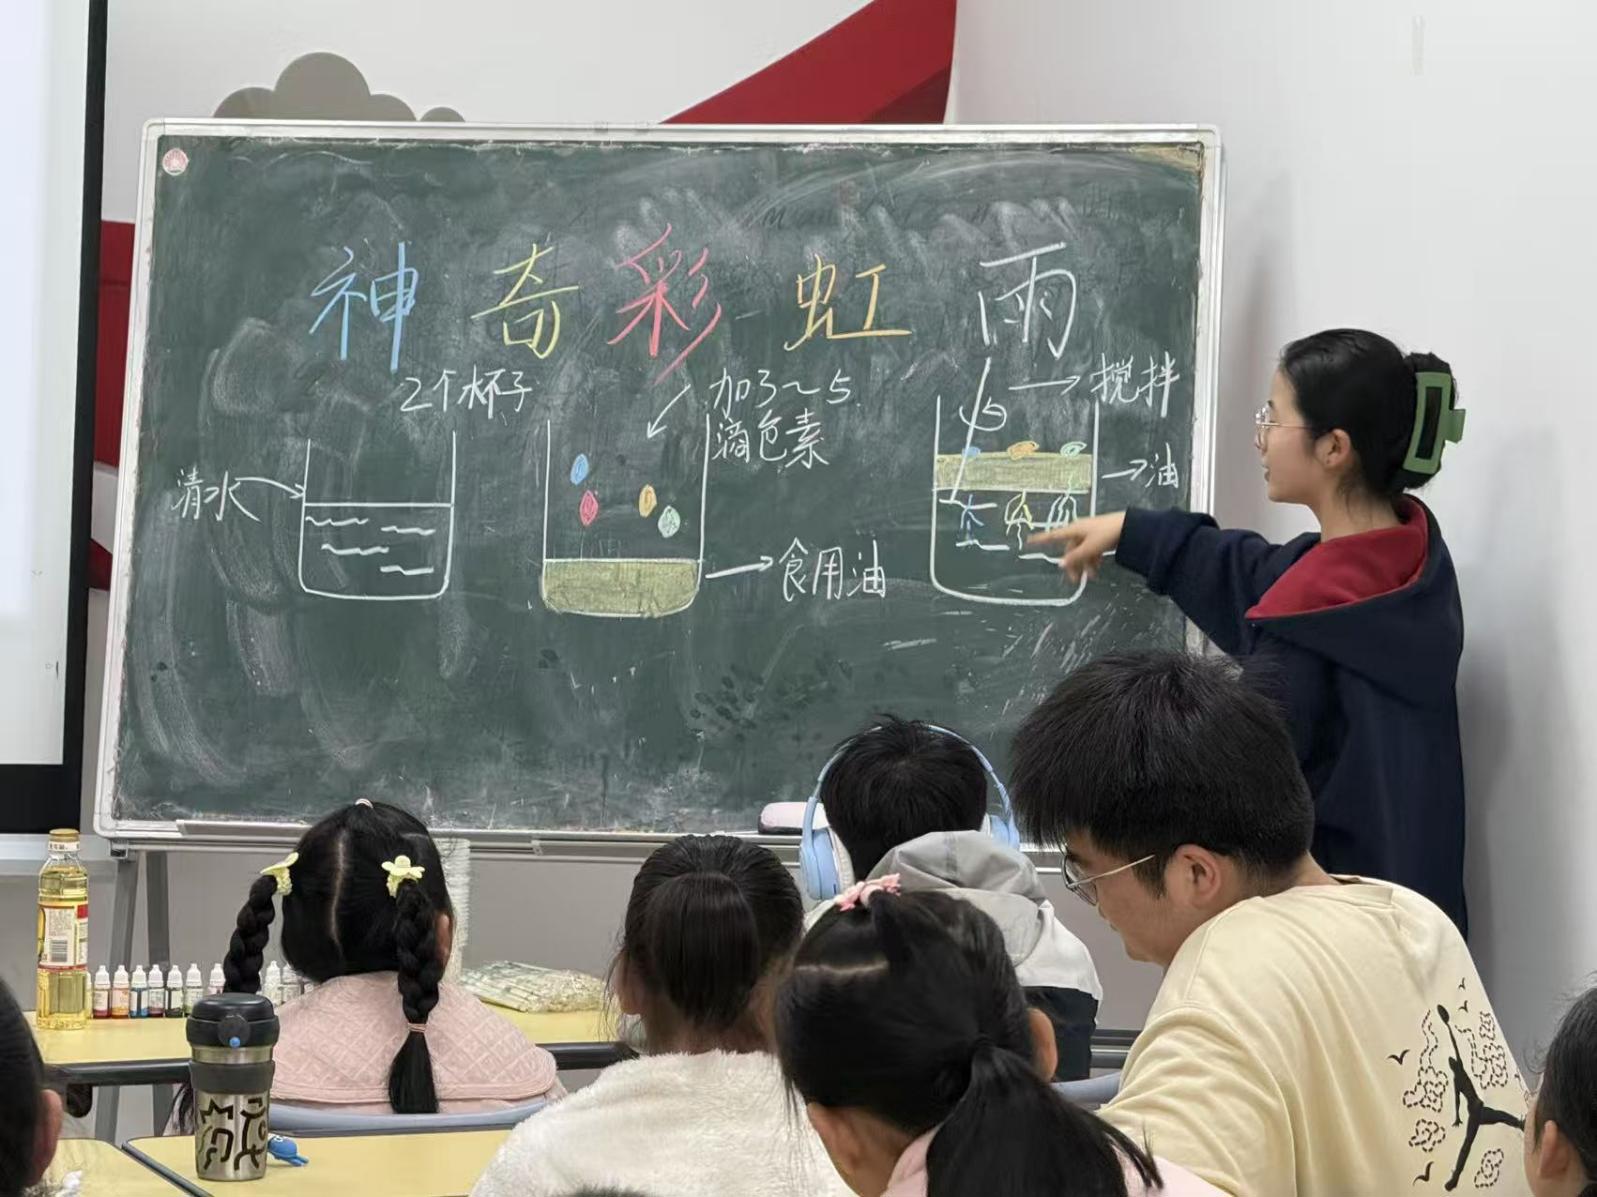 神奇彩虹雨
2个杯子
清水
加3~5
滴色素
食用油
搅拌
油